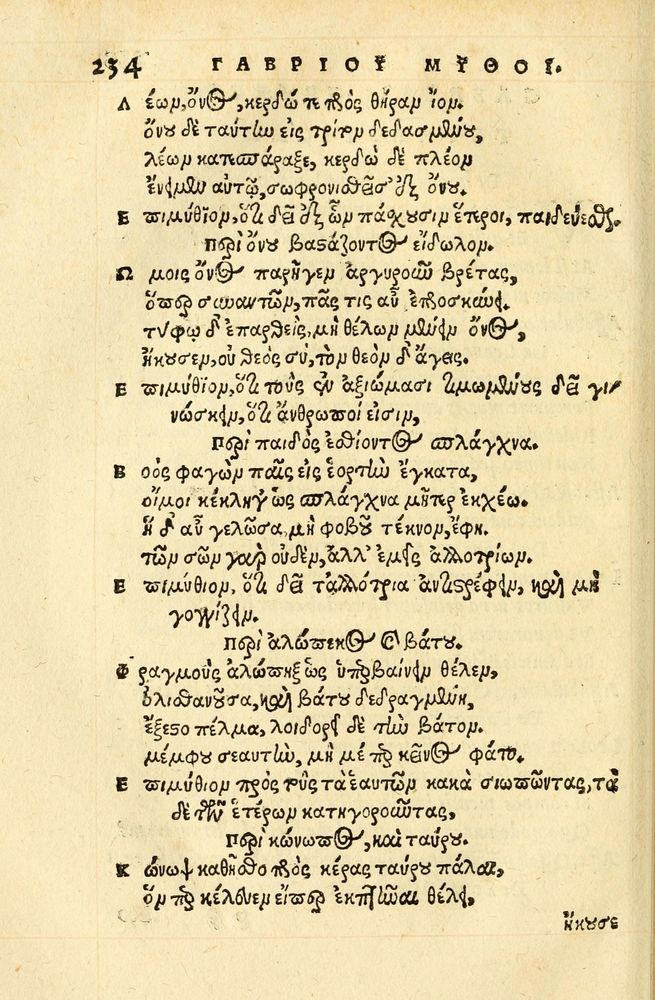 234 ΓΑΒΡΙΟΥ ΜΥΘΟΙ.
Λέων, ὄνος, κερδώ τε πρὸς θήραν ἴον.
ὄνου δὲ ταύτην εἰς τρίτον δεδασμένου,
λέων κατεσπάραξε, κερδὼ δὲ πλέον
ἔνειμεν αὐτῷ, σωφρονισθεῖσ' ἐξ ὄνου.
Ἐπιμύθιον, ὅτι δεῖ ἐξ ὧν πάσχουσιν ἕτεροι, παιδεύεσθαι.
Περὶ ὄνου βαστάζοντος εἴδωλον.
Ὤμοις ὄνος παρῆγεν ἀργυροῦν βρέτας,
ὅπερ συναντῶν, πᾶς τις αὖ προσκυνεῖ.
τύφῳ δ' ἐπαρθεὶς, μὴ θέλων μένειν ὄνος,
ἤκουσεν, οὐ θεὸς σὺ, τὸν θεὸν δ' ἄγεις.
Ἐπιμύθιον, ὅτι τοὺς ἐν ἀξιώμασι τιμωμένους δεῖ γι-
νώσκειν, ὅτι ἄνθρωποί εἰσιν,
Περὶ παιδὸς ἐσθίοντος σπλάγχνα.
Βοὸς φαγὼν παῖς εἰς ἑορτὴν ἔγκατα,
οἴμοι κέκληγ' ὡς σπλάγχνα μῆτερ ἐκχέω.
ἡ δ' αὖ γελῶσα, μὴ φοβοῦ τέκνον, ἔφη.
τῶν σῶν γὰρ οὐδὲν, ἀλλ' ἐμεῖς ἀλλοτρίων.
Ἐπιμύθιον, ὅτι δεῖ τἀλλότρια ἀντιστρέφειν, καὶ μὴ
γογγίζειν.
Περὶ ἀλώπεκος καὶ βάτου.
Φραγμοὺς ἀλώπηξ ὡς ὑπερβαίνειν θέλεν,
ὀλισθανοῦσα, καὶ βάτου δεδραγμένη,
ἔξεστο πέλμα, λοιδορεῖ δὲ τὴν βάτον.
μέμφου σεαυτὴν, μή με πρὸς κεῖνος φάτο.
Ἐπιμύθιον πρὸς τοὺς τὰ ἑαυτῶν κακὰ σιωπῶντας, τὰ
δὲ τῶν ἑτέρων κατηγοροῦντας,
Περὶ κώνωπος, καὶ ταύρου.
Κώνωψ καθῆστο πρὸς κέρας ταύρου πάλαι,
ὃν πρὸς κέλευεν εἴπερ ἐκπτῆναι θέλει,
ἤκουσε